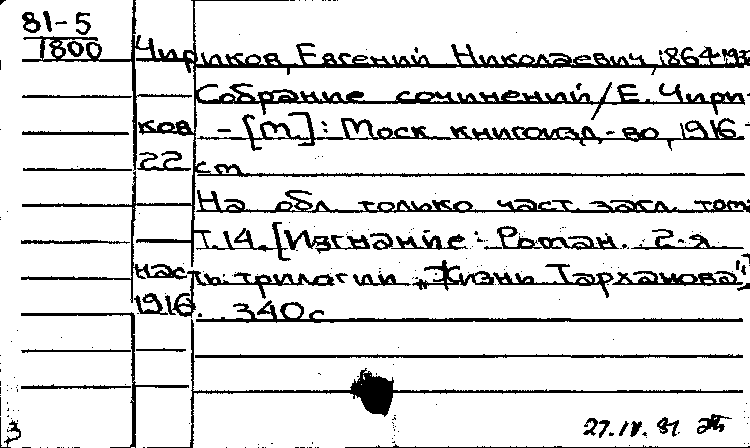 81-5
1800
Чириков, Евгений Николаевич, 1864-193
Собрание сочинений / Е. Чири-
ков. - [М.]: Моск. книгоизд-во, 1916.
22 см
На обл. только част. загл. тома
Т.14. [Изгнание: Роман. 2-я
часть трилогии „Жизнь Тарханова"]
1916. 340с
3
27.IV.81.